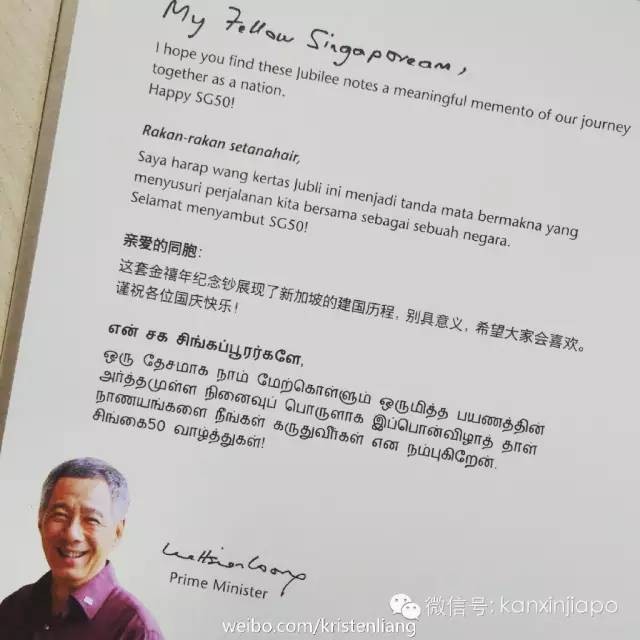 My Fellow Singaporeans,
I hope you find these Jubilee notes a meaningful memento of our journey
together as a nation.
Happy SG50!
Rakan-rakan setanahair,
Saya harap wang kertas Jubli ini menjadi tanda mata bermakna yang
menyusuri perjalanan kita bersama sebagai sebuah negara.
Selamat menyambut SG50!
亲爱的同胞：
这套金禧年纪念钞展现了新加坡的建国历程，别具意义，希望大家会喜欢。
谨祝各位国庆快乐！
என் சக சிங்கப்பூரர்களே,
ஒரு தேசமாக நாம் மேற்கொள்ளும் ஒருமித்த பயணத்தின்
அர்த்தமுள்ள நினைவுப் பொருளாக இப்பொன்விழாத் தாள்
நாணயங்களை நீங்கள் கருதுவீர்கள் என நம்புகிறேன்.
சிங்கை50 வாழ்த்துகள்!
Lee Hsien Loong
Prime Minister
微信号: kanxinjiapo
weibo.com/kristenliang